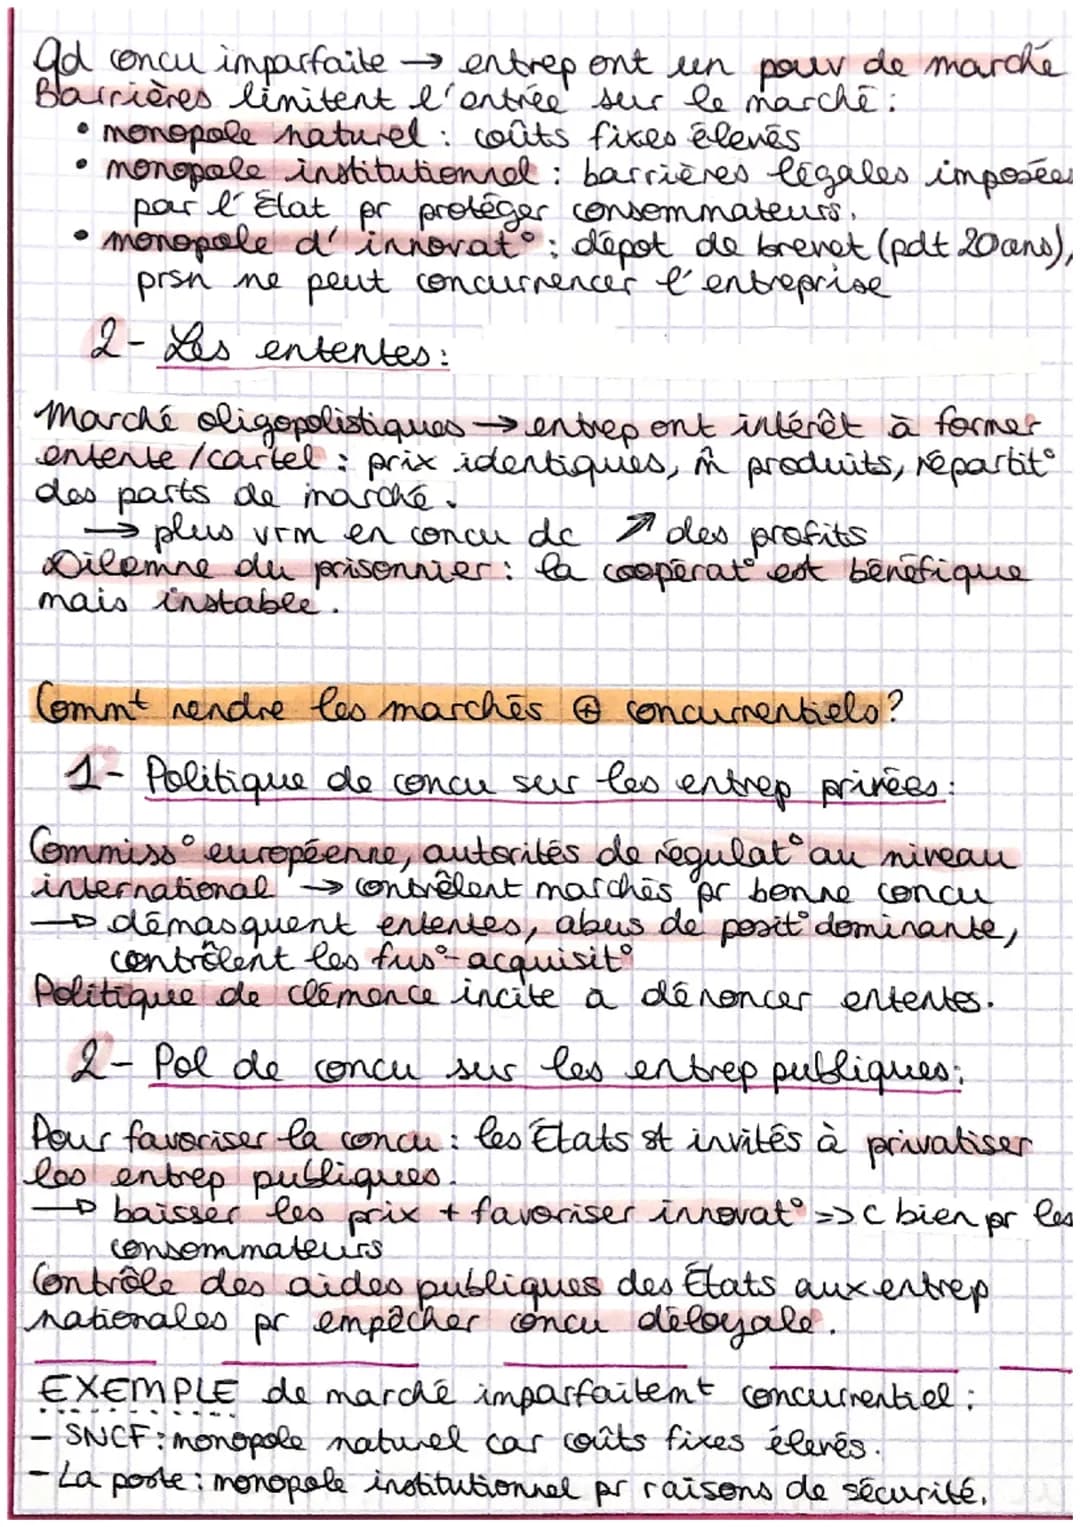 Qd concu imparfaite → entrep ont un pouv de marché
Barrières limitent l'entrée sur le marché :
• monopole naturel : coûts fixes élevés
• monopole institutionnel : barrières légales imposées
par l'État pr protéger consommateurs.
• monopole d'innovat° : dépot de brevet (pdt 20 ans),
prsn ne peut concurrencer l'entreprise
2- Les ententes :
Marché oligopolistiques → entrep ont intérêt à former
entente / cartel : prix identiques, m̂ produits, répartit°
des parts de marché.
→ plus vrm en concu dc ↗ des profits
Dilemne du prisonnier : la coopérat° est bénéfique
mais instable.
Commt rendre les marchés ⊕ concurrentiels ?
1- Politique de concu sur les entrep privées :
Commiss° européenne, autorités de régulat° au niveau
international → contrôlent marchés pr bonne concu
→ démasquent ententes, abus de posit° dominante,
contrôlent les fus°-acquisit°
Politique de clémence incite a dénoncer ententes.
2- Pol de concu sur les entrep publiques :
Pour favoriser la concu : les États st invités à privatiser
les entrep publiques.
→ baisser les prix + favoriser innovat° => c bien pr les
consommateurs
Contrôle des aides publiques des États aux entrep
nationales pr empêcher concu déloyale.
EXEMPLE de marché imparfaitemt concurrentiel :
- SNCF : monopole naturel car coûts fixes élevés.
- La poste : monopole institutionnel pr raisons de sécurité.